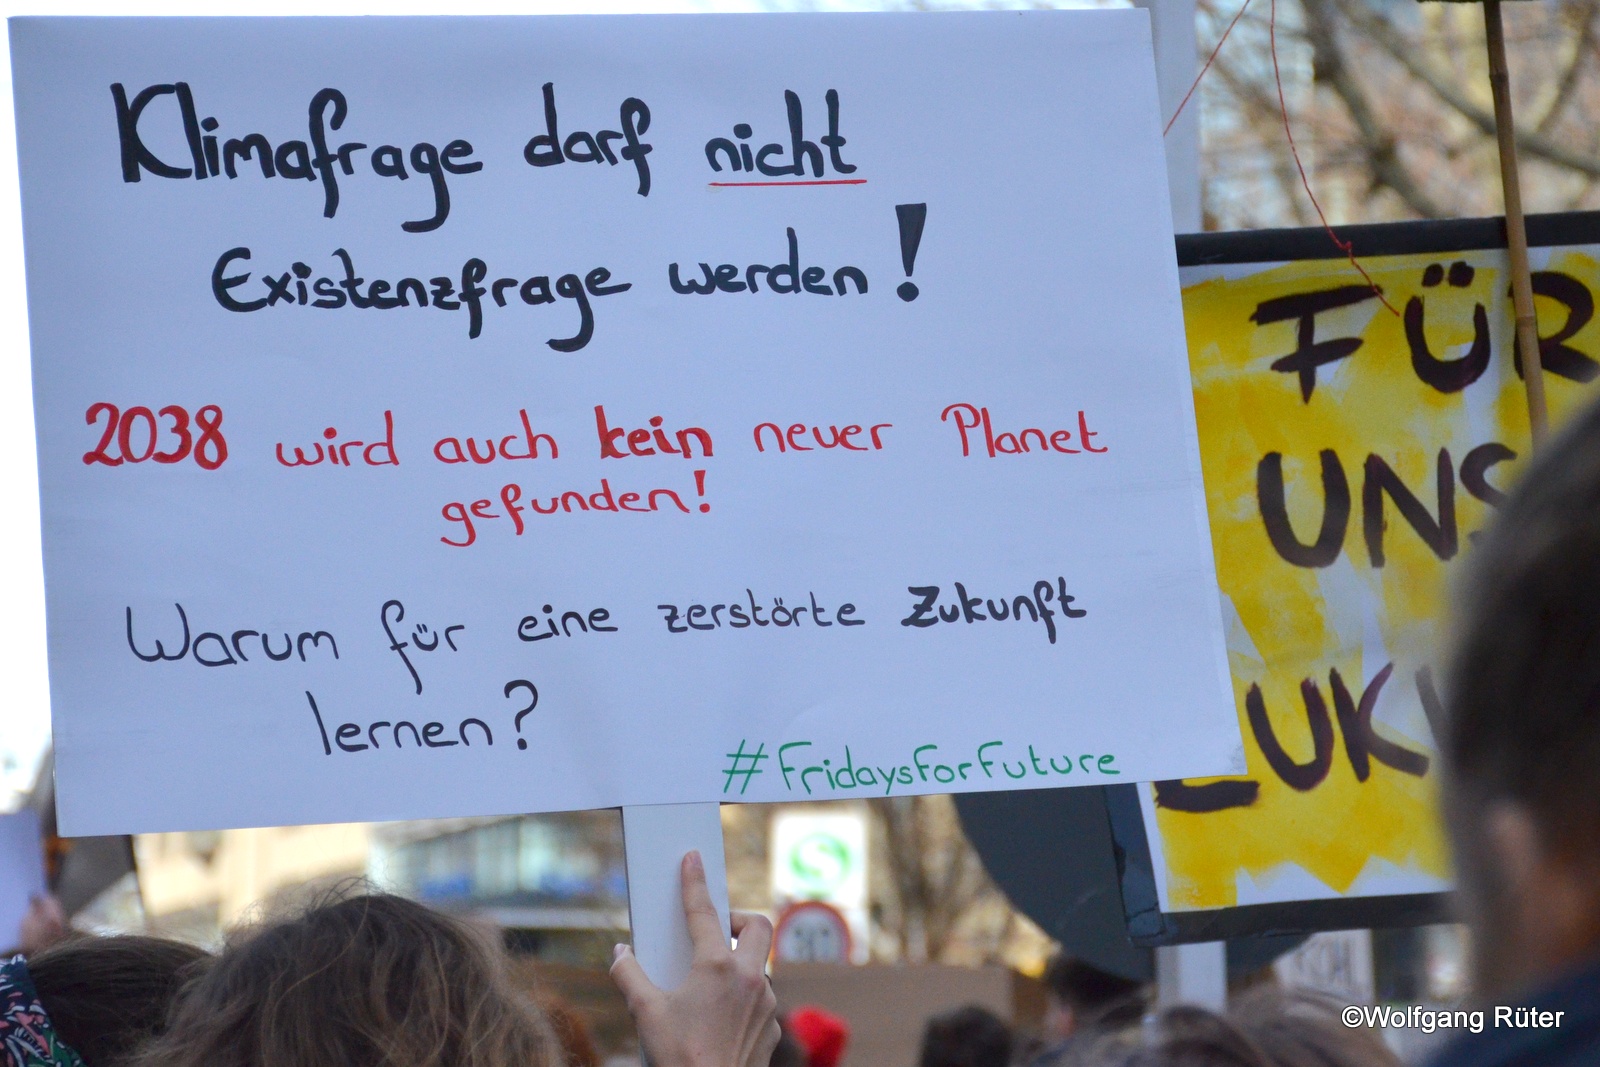 Klimafrage darf nicht
Existenzfrage werden!
2038 wird auch kein neuer Planet
gefunden!
Warum für eine zerstörte Zukunft
lernen?
#FridaysForFuture
FÜR
UNS
ZUK
30
©Wolfgang Rüter